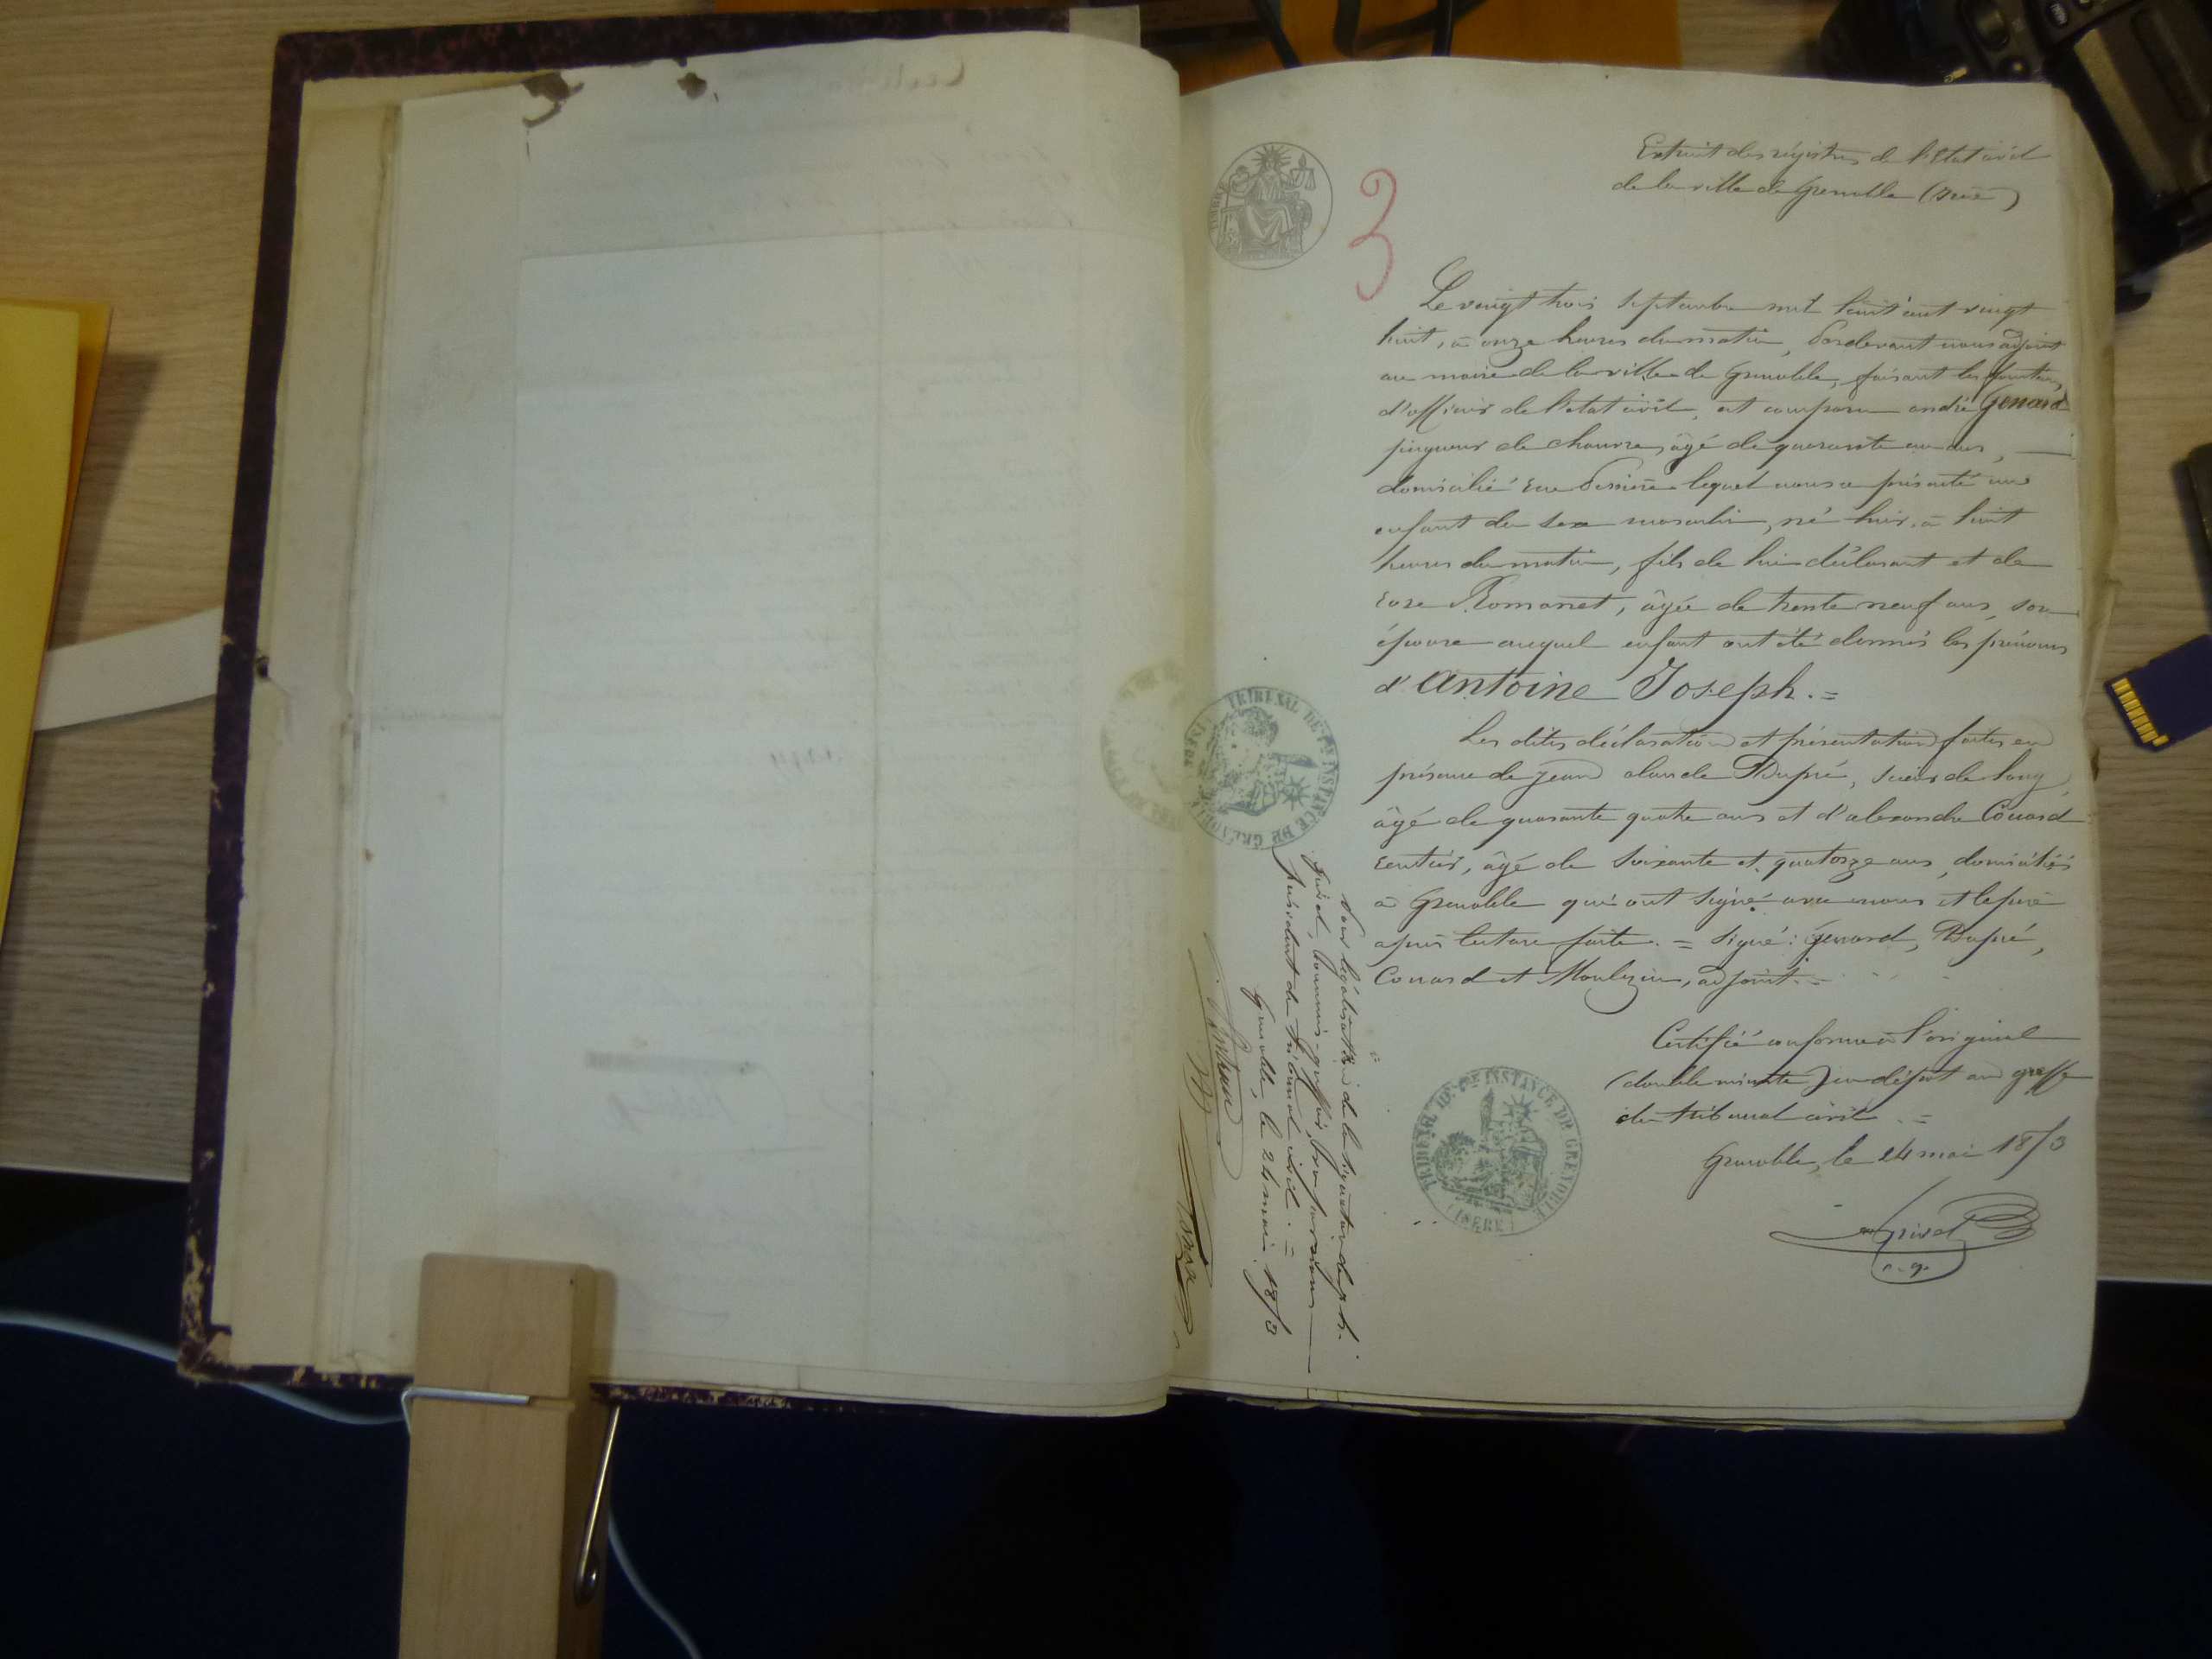 3
Extrait des régistres de l'Etat civil
de la ville de Grenoble (Isère)
Le vingt trois septembre mil huit cent vingt
huit, à onze heures du matin, Pardevant nous adjoint
au maire de la ville de Grenoble, faisant les fonctions
d'officier de l'état civil, est comparu andré Genard
peigneur de chanvre, âgé de quarante un ans, —
domicilié rue Perrière lequel nous a présenté un
enfant du sexe masculin, né hier, à huit
heures du matin, fils de lui déclarant et de
Rose Romanet, âgée de trente neuf ans, son
épouse auquel enfant ont été donnés les prénoms
d'Antoine Joseph. =
Les dites déclaration et présentation faites en
présence de Jean claude Dupré, scieur de long,
âgé de quarante quatre ans et d'alexandre Couard
rentier, âgé de soixante et quatorze ans, domiciliés
à Grenoble qui ont signé avec nous et le père
après lecture faite. = Signé: Genard, Dupré,
Couard et Moulezin, adjoint. =
Certifié conforme à l'original
(double minute) en dépôt au greffe
du tribunal civil. =
Grenoble, le 24 mai 1873
Grisel
c. g.
TRIBUNAL DE 1re INSTANCE DE GRENOBLE
(ISERE)
TRIBUNAL DE 1re INSTANCE DE GRENOBLE
(ISERE)
Pour légalisation de la signature de Mr
Grisel, Commis-greffier, par nous —
Président du tribunal civil. =
Grenoble, le 24 mai 1873